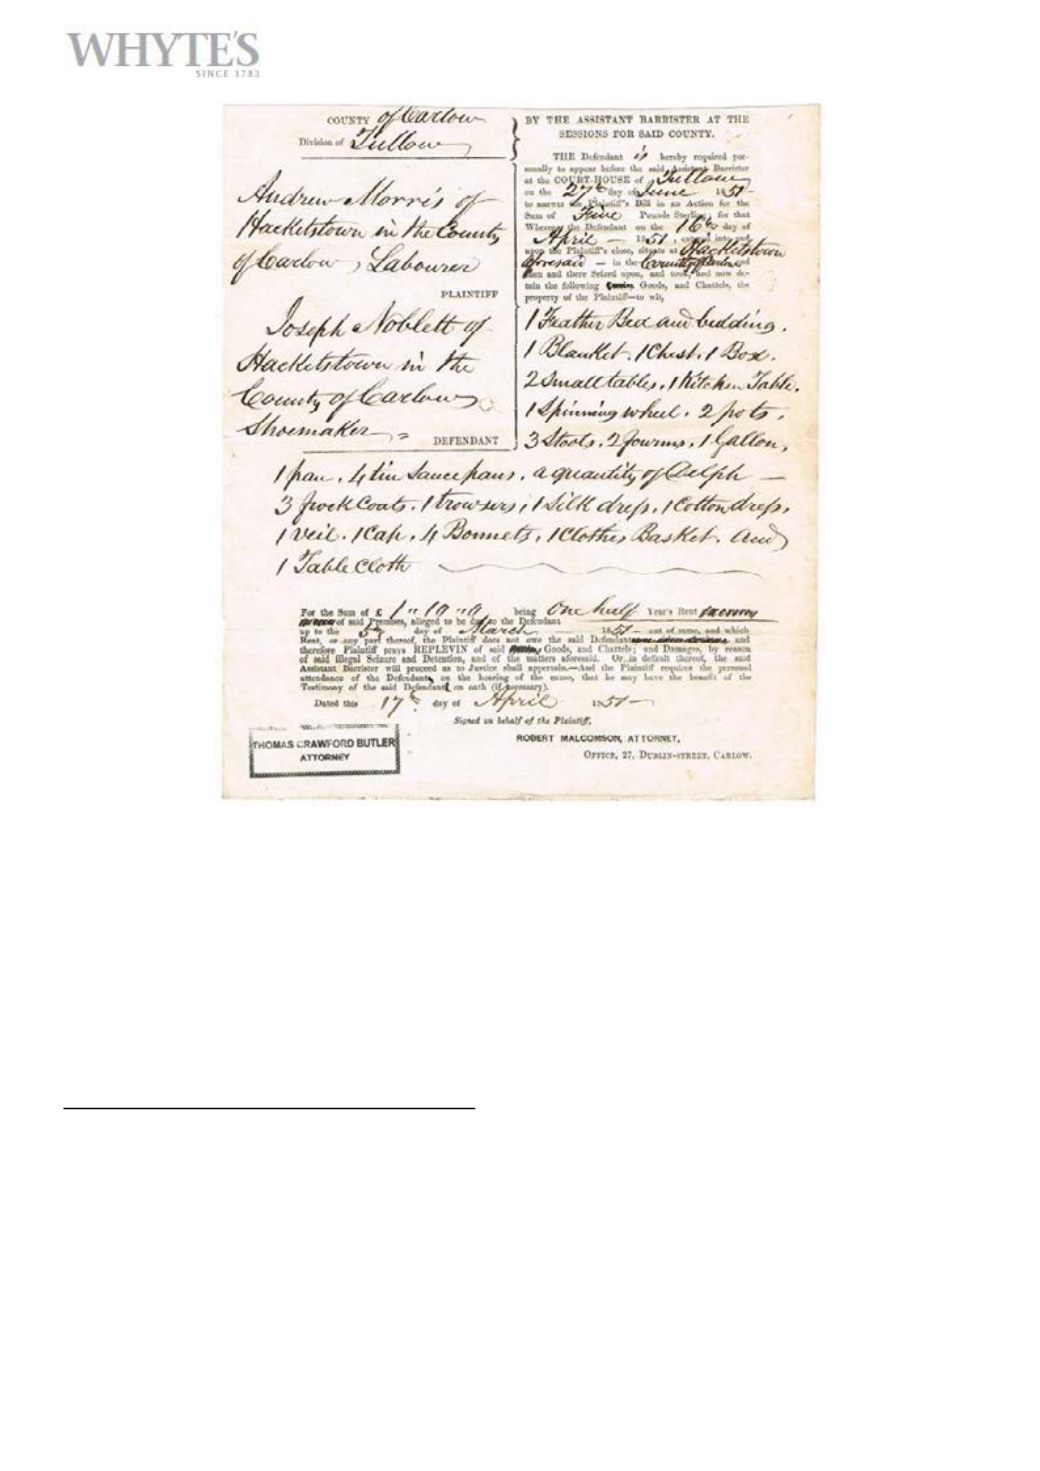 WHYTE'S
SINCE 1783
COUNTY of Carlow
Division of Tullow
Andrew Morris of
Hacketstown in the County
of Carlow, Labourer
PLAINTIFF
Joseph Noblett of
Hacketstown in the
County of Carlow
Shoemaker
DEFENDANT
BY THE ASSISTANT BARRISTER AT THE
SESSIONS FOR SAID COUNTY.
THE Defendant is hereby required per-
sonally to appear before the said Assistant Barrister
at the COURT-HOUSE of Tullow
on the 27th day of June 1851
to answer the Plaintiff's Bill in an Action for the
Sum of Five Pounds Sterling; for that
Whereas the Defendant on the 16th day of
April 1851, entered into and
upon the Plaintiff's close, situate at Hacketstown
aforesaid in the County of Carlow and
then and there Seized upon, and took, and now de-
tain the following Goods, and Chattels, the
property of the Plaintiff—to wit,
1 Feather Bed and bedding.
1 Blanket. 1 Chest. 1 Box.
2 Small tables. 1 Kitchen Table.
1 Spinning wheel. 2 pots.
3 Stools. 2 fourms. 1 Gallon,
1 pan. 4 tin Saucepans. a quantity of Delph —
3 frock Coats. 1 trowsers, 1 Silk dress. 1 Cotton dress,
1 veil. 1 Cap. 4 Bonnets. 1 Clothes Basket. And
1 Table Cloth
For the Sum of £ being One half Year's Rent
of said Premises, alleged to be due to the Defendant
up to the 5th day of March 1851 out of same, and which
Rent, or any part thereof, the Plaintiff does not owe the said Defendant and
therefore Plaintiff prays REPLEVIN of said Goods, and Chattels; and Damages, by reason
of said illegal Seizure and Detention, and of the matters aforesaid. Or in default thereof, the said
Assistant Barrister will proceed as to Justice shall appertain.—And the Plaintiff requires the personal
attendance of the Defendant, on the hearing of the cause, that he may have the benefit of the
Testimony of the said Defendant on oath (if necessary).
Dated this 17th day of April 1851
Signed on behalf of the Plaintiff,
ROBERT MALCOMSON, ATTORNEY,
OFFICE, 27, DUBLIN-STREET, CARLOW.
THOMAS CRAWFORD BUTLER
ATTORNEY